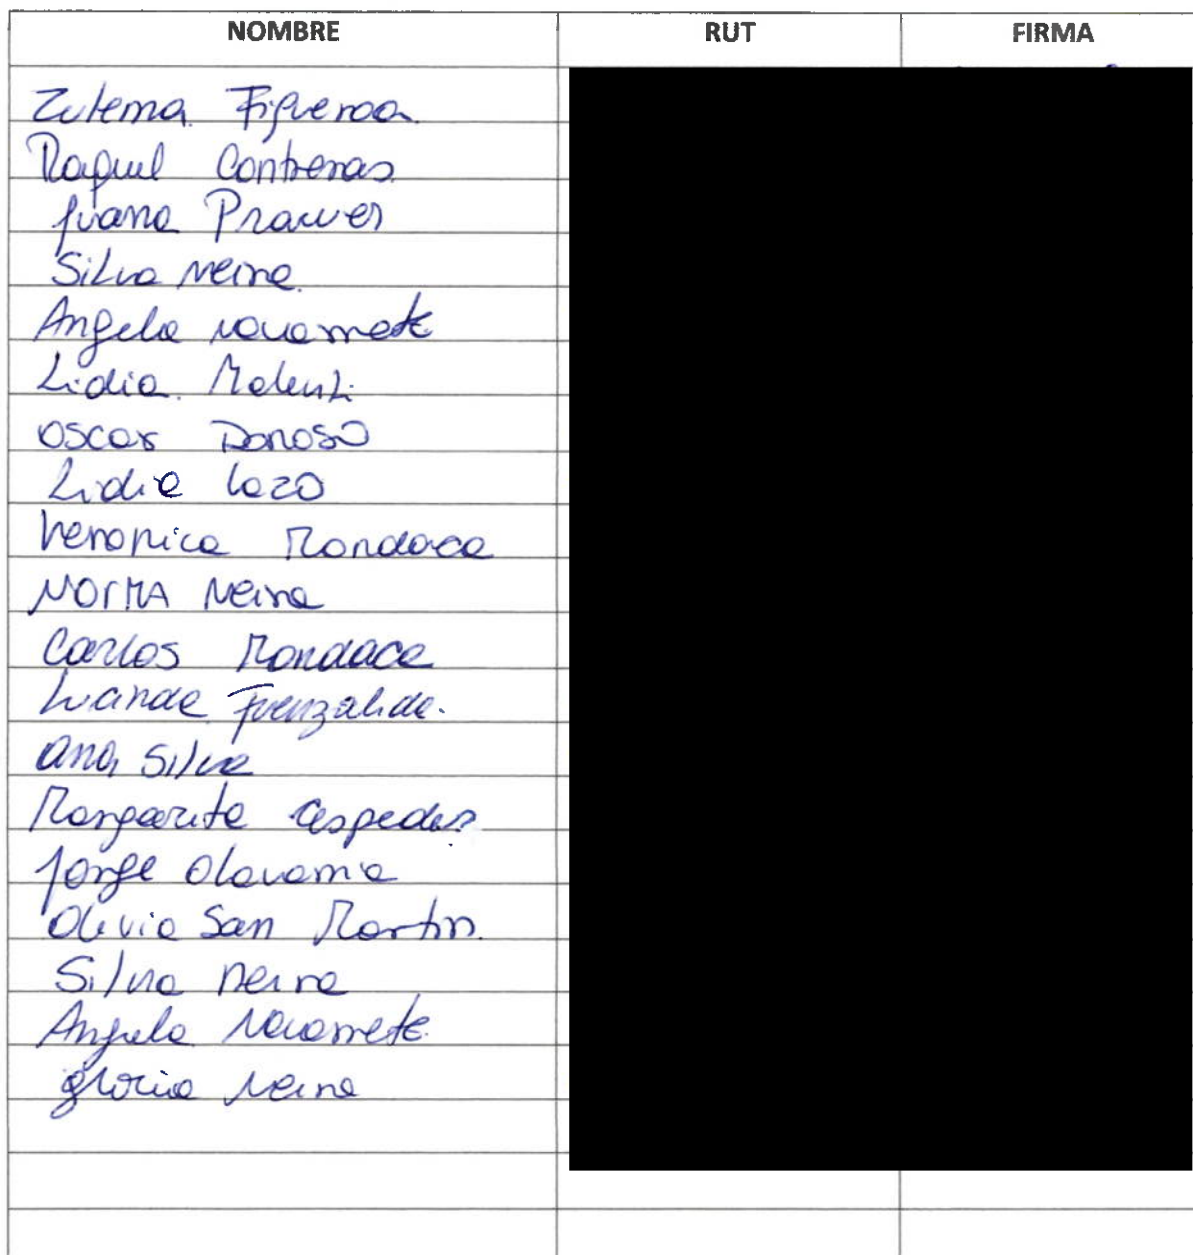 NOMBRE RUT FIRMA
Zulema Figueroa
Raquel Contreras
Juana Prawer
Silva Neira
Angela Navarrete
Lidia
Oscar Donoso
Lidia Lazo
Veronica Mondaca
NORMA Neira
Carlos Mondaca
Fuenzalida.
Ana Silva
Margarita Cespedes
Jorge Olavarria
Olivia San Martin
Silvia Neira
Angela Navarrete
gloria Neira